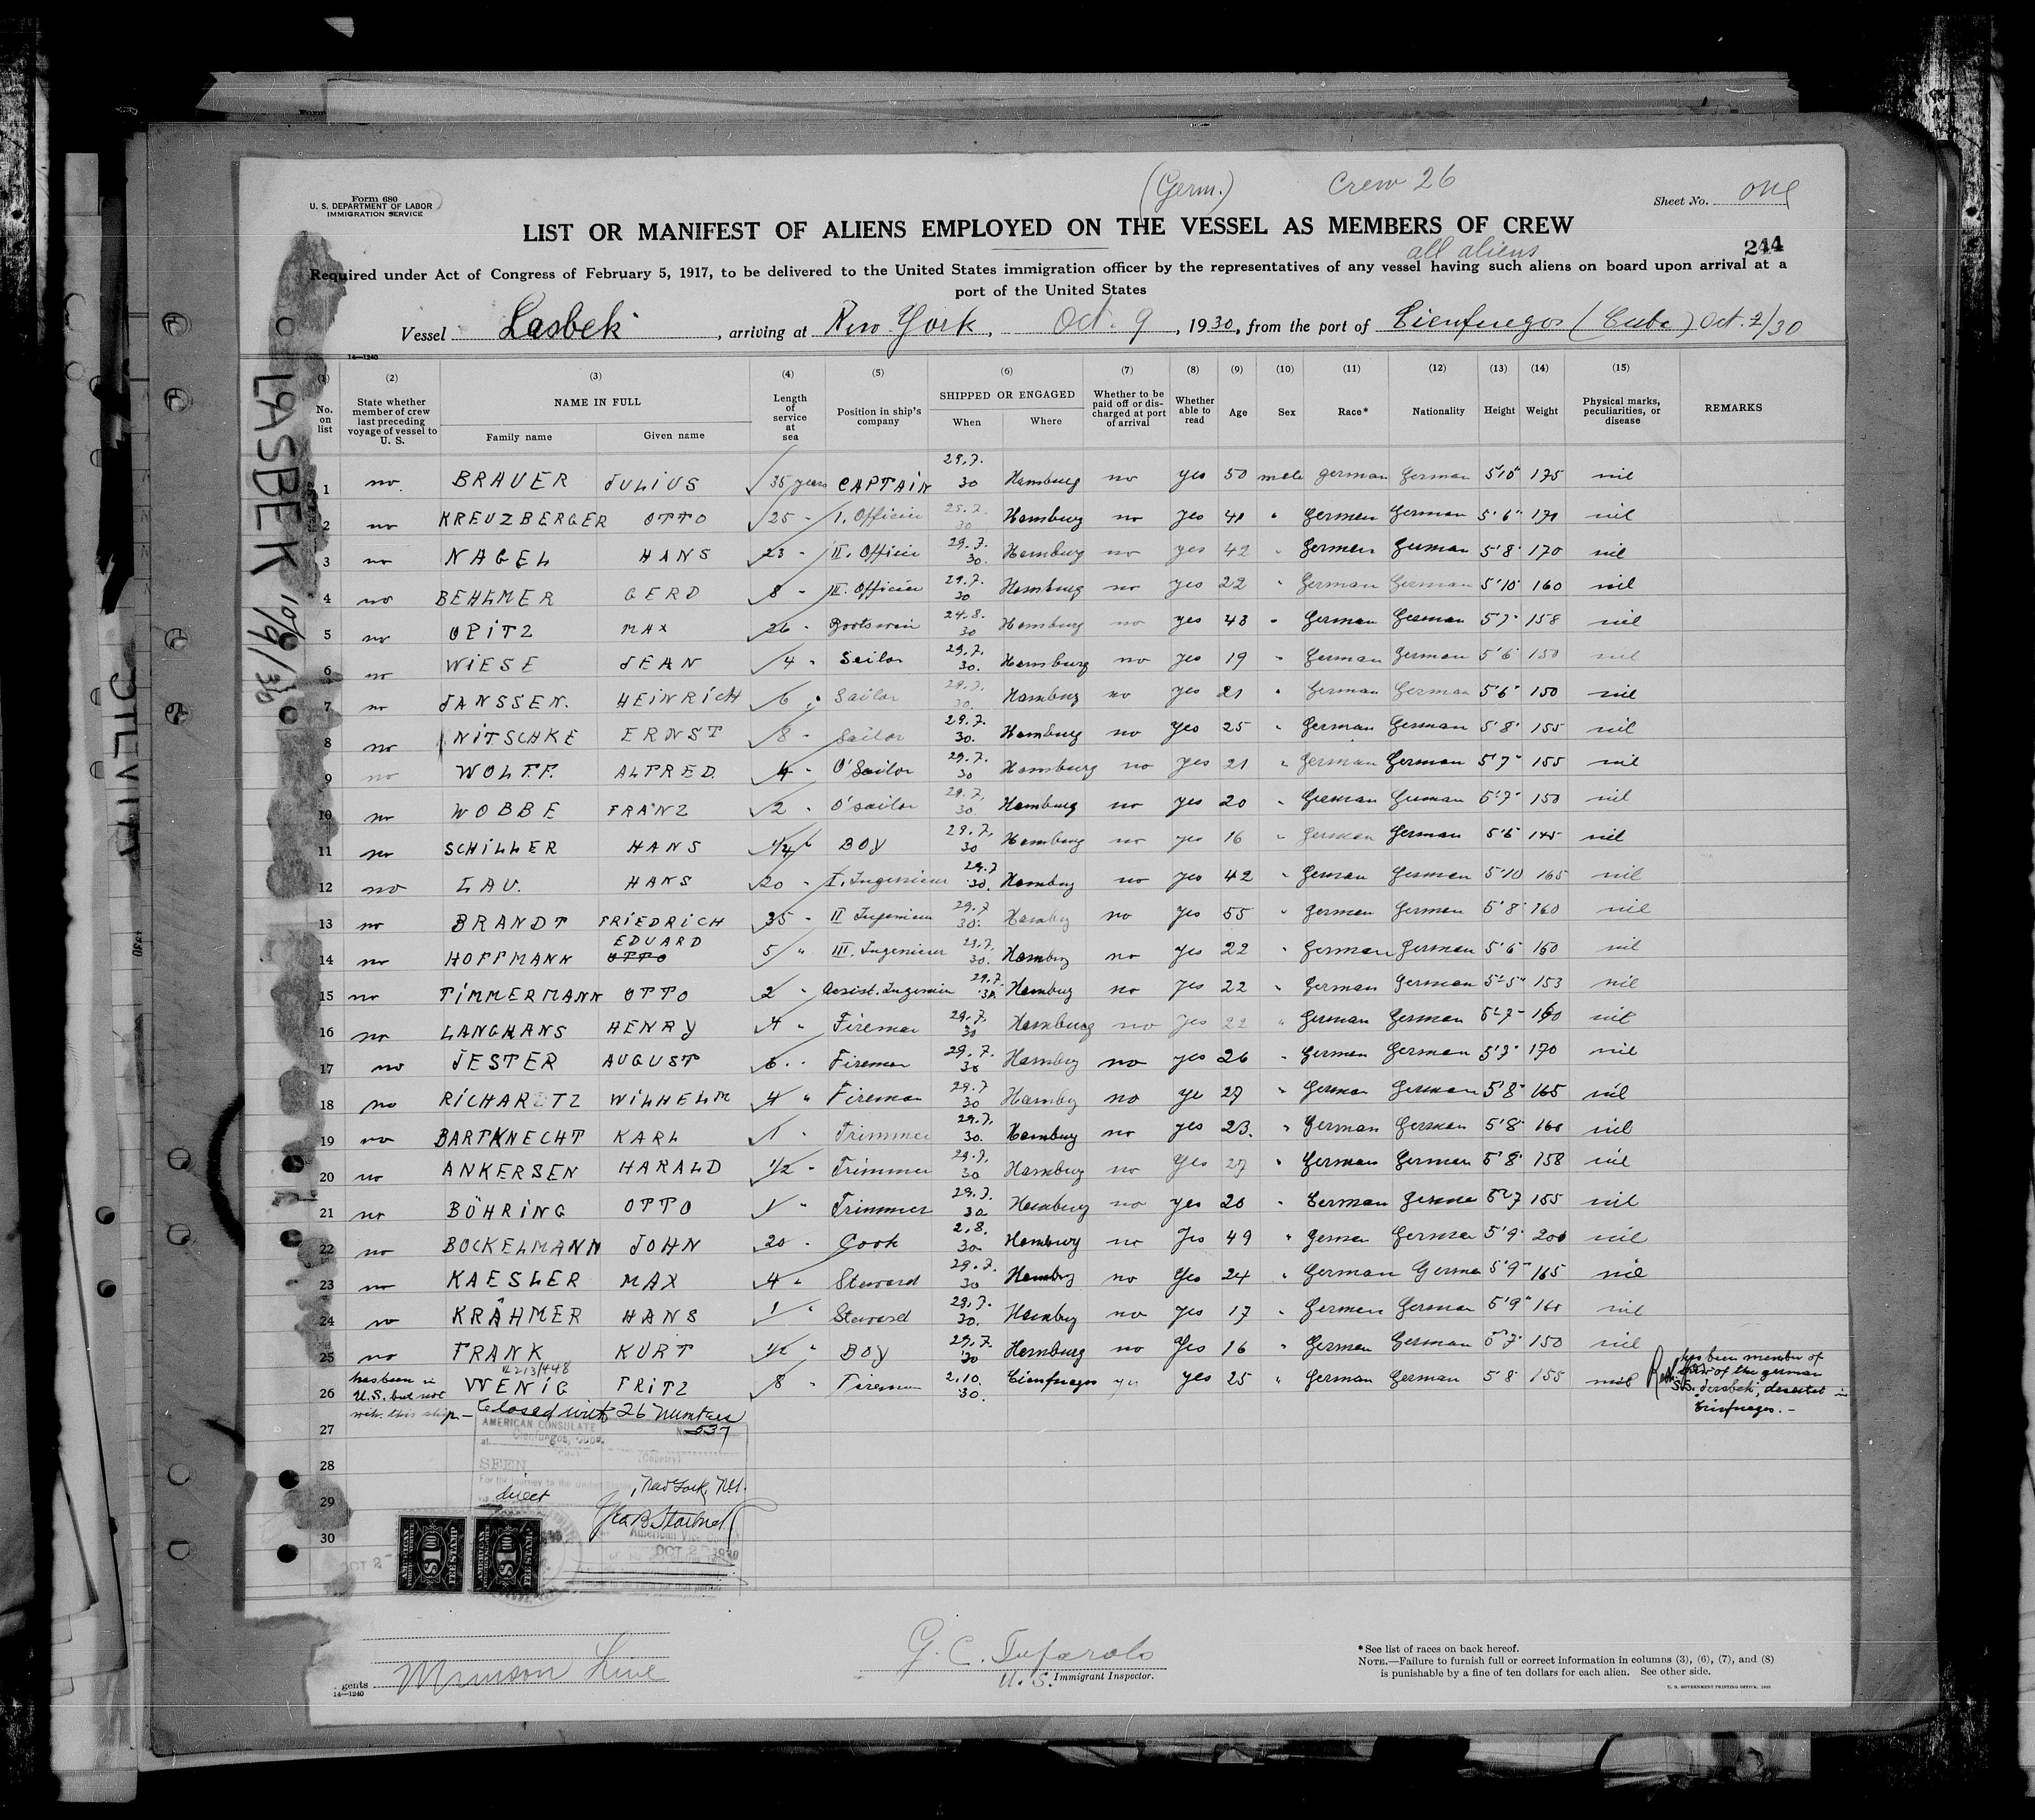 (Germ.) Crew 26
Form 680
U. S. DEPARTMENT OF LABOR
IMMIGRATION SERVICE
Sheet No. one
LIST OR MANIFEST OF ALIENS EMPLOYED ON THE VESSEL AS MEMBERS OF CREW
all aliens
244
Required under Act of Congress of February 5, 1917, to be delivered to the United States immigration officer by the representatives of any vessel having such aliens on board upon arrival at a
port of the United States
Vessel Lasbek, arriving at New York, Oct. 9, 1930, from the port of Cienfuegos (Cuba) Oct. 2/30
14—1240
(1) No. on list (2) State whether member of crew last preceding voyage of vessel to U. S. (3) NAME IN FULL Family name Given name (4) Length of service at sea (5) Position in ship's company (6) SHIPPED OR ENGAGED When Where (7) Whether to be paid off or discharged at port of arrival (8) Whether able to read (9) Age (10) Sex (11) Race* (12) Nationality (13) Height (14) Weight (15) Physical marks, peculiarities, or disease REMARKS
1 no BRAUER JULIUS 35 years CAPTAIN 29.7.30 Hamburg no yes 50 male german German 5'10" 175 nil
2 no KREUZBERGER OTTO 25 " I. Officier 29.7.30 Hamburg no yes 41 " German German 5'6" 170 nil
3 no NAGEL HANS 23 " II. Officier 29.7.30. Hamburg no yes 42 " German German 5'8" 170 nil
4 no BEHLMER GERD 8 " III. Officier 29.7.30 Hamburg no yes 22 " German German 5'10" 160 nil
5 no OPITZ MAX 26 " Bootswain 24.8.30 Hamburg no yes 43 " German German 5'7" 158 nil
6 no WIESE JEAN 4 " Sailor 29.7.30. Hamburg no yes 19 " German German 5'6 150 nil
7 no JANSSEN. HEINRICH 6 " Sailor 29.7.30. Hamburg no yes 21 " German German 5'6" 150 nil
8 no NITSCHKE ERNST 8 " Sailor 29.7.30. Hamburg no yes 25 " German German 5'8" 155 nil
9 no WOLFF. ALFRED. 4 " O'Sailor 29.7.30 Hamburg no yes 21 " German German 5'7" 155 nil
10 no WOBBE FRANZ 2 " O'sailor 29.7.30 Hamburg no yes 20 " German German 5'7" 150 nil
11 no SCHILLER HANS 1/4 " BOY 29.7.30 Hamburg no yes 16 " German German 5'5 145 nil
12 no LAU. HANS 20 " I. Ingenieur 29.7.30. Hamburg no yes 42 " German German 5'10 165 nil
13 no BRANDT FRIEDRICH 35 " II Ingenieur 29.7.30. Hamburg no yes 55 " German German 5'8" 160 nil
14 no HOFFMANN EDUARD OTTO 5 " III. Ingenieur 29.7.30. Hamburg no yes 22 " German German 5'6" 150 nil
15 no TIMMERMANN OTTO 2 " Assist. Ingenieur 29.7.30. Hamburg no yes 22 " German German 5'5" 153 nil
16 no LANGHANS HENRY 4 " Fireman 29.7.30 Hamburg no yes 22 " German German 5'7" 160 nil
17 no JESTER AUGUST 6 " Fireman 29.7.30 Hamburg no yes 26 " German German 5'7" 170 nil
18 no RICHARTZ WILHELM 4 " Fireman 29.7.30 Hamburg no ye 27 " German German 5'8" 165 nil
19 no BARTKNECHT KARL 1 " Trimmer 29.7.30. Hamburg no yes 23. " German German 5'8" 160 nil
20 no ANKERSEN HARALD 1/2 " Trimmer 29.7.30 Hamburg no yes 27 " German German 5'8" 158 nil
21 no BÖHRING OTTO 1 " Trimmer 29.7.30 Hamburg no yes 20 " German German 5'7 155 nil
22 no BOCKELMANN JOHN 20 " Cook 2.8.30 Hamburg no yes 49 " German German 5'9" 200 nil
23 no KAESLER MAX 4 " Steward 29.7.30 Hamburg no yes 24 " German German 5'9" 165 nil
24 no KRÄHMER HANS 1 " Steward 29.7.30. Hamburg no yes 17 " German German 5'9" 160 nil
25 no FRANK KURT 1/2 " BOY 29.7.30 Hamburg no yes 16 " German German 5'7" 150 nil
26 has been in U.S. but not with this ship— WENIG FRITZ 8 " Fireman 2.10.30. Cienfuegos yes 25 " German German 5'8 155 nil has been member of of the german S.S. deserted in Cienfuegos.—
Closed with 26 numbers
27
AMERICAN CONSULATE
No. 537
at Cienfuegos, Cuba
(Country)
28
SEEN
For the journey to the United States
29
direct, New York, N.Y.
30
American Vice Consul
OCT 2 1930
AMERICAN FOREIGN SERVICE $1.00 FEE STAMP
AMERICAN FOREIGN SERVICE $1.00 FEE STAMP
LASBEK 10/9/30
gents Munson Line
14—1240
U. S. Immigrant Inspector.
*See list of races on back hereof.
NOTE.—Failure to furnish full or correct information in columns (3), (6), (7), and (8)
is punishable by a fine of ten dollars for each alien. See other side.
U. S. GOVERNMENT PRINTING OFFICE